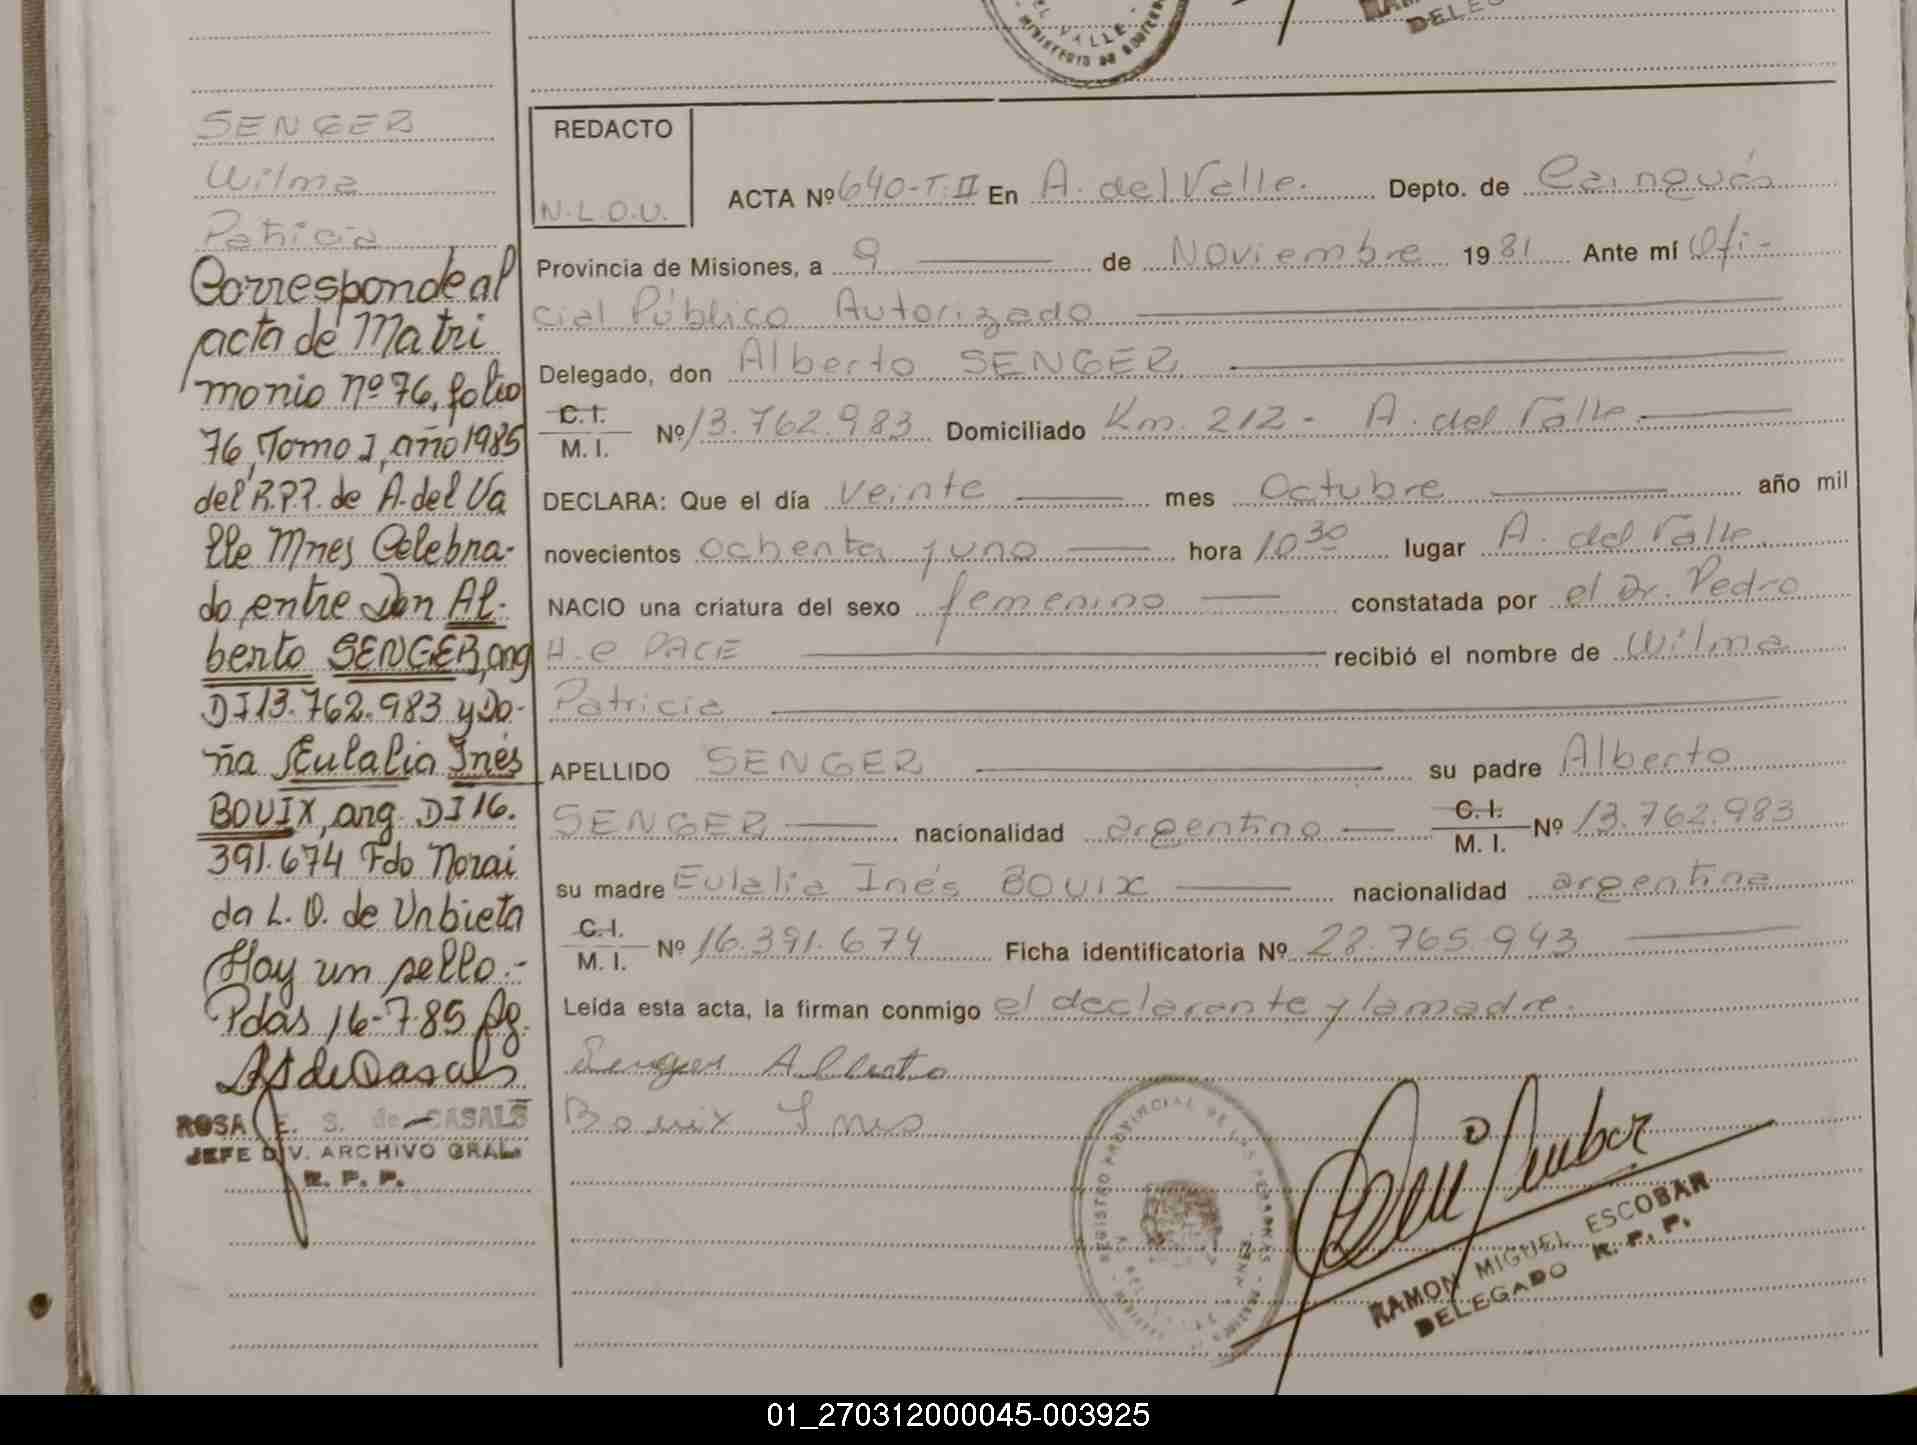 EL VALLE
MINISTERIO DE GOBIERNO
DELEG
SENGER
Wilma
Patricia
Corresponde al
acta de Matri
monio Nº 76, folio
76, Tomo I, año 1985
del R.P.P. de A. del Va
lle Mnes Celebra-
do, entre Don Al-
berto SENGER, arg
DI 13.762.983 y Do-
ña Eulalia Inés
BOUIX, arg. DI 16.
391.674 Fdo Norai
da L. O. de Urbieta
Hay un sello.-
Pdas 16-7-85 Ag.
ROSA E. S. de CASALS
JEFE DIV. ARCHIVO GRAL.
R. P. P.
REDACTO
N.L.O.U.
ACTA Nº 640-T.II En A. del Valle. Depto. de Cainguás
Provincia de Misiones, a 9 de Noviembre 1981 Ante mí Ofi-
cial Público Autorizado
Delegado, don Alberto SENGER
C. I.
M. I. Nº 13.762.983 Domiciliado Km. 212 - A. del Valle
DECLARA: Que el día veinte mes Octubre año mil
novecientos ochenta y uno hora 10 30 lugar A. del Valle.
NACIO una criatura del sexo femenino constatada por el Dr. Pedro
H. PACE recibió el nombre de Wilma
Patricia
APELLIDO SENGER su padre Alberto
SENGER nacionalidad argentino C. I. M. I. Nº 13.762.983
su madre Eulalia Inés BOUIX nacionalidad argentina
C. I.
M. I. Nº 16.391.674 Ficha identificatoria Nº 28.765.943
Leída esta acta, la firman conmigo el declarante y la madre.
Senger Alberto
Bouix Ines
REGISTRO PROVINCIAL DE LAS PERSONAS
RAMON MIGUEL ESCOBAR
DELEGADO R. P. P.
01_270312000045-003925